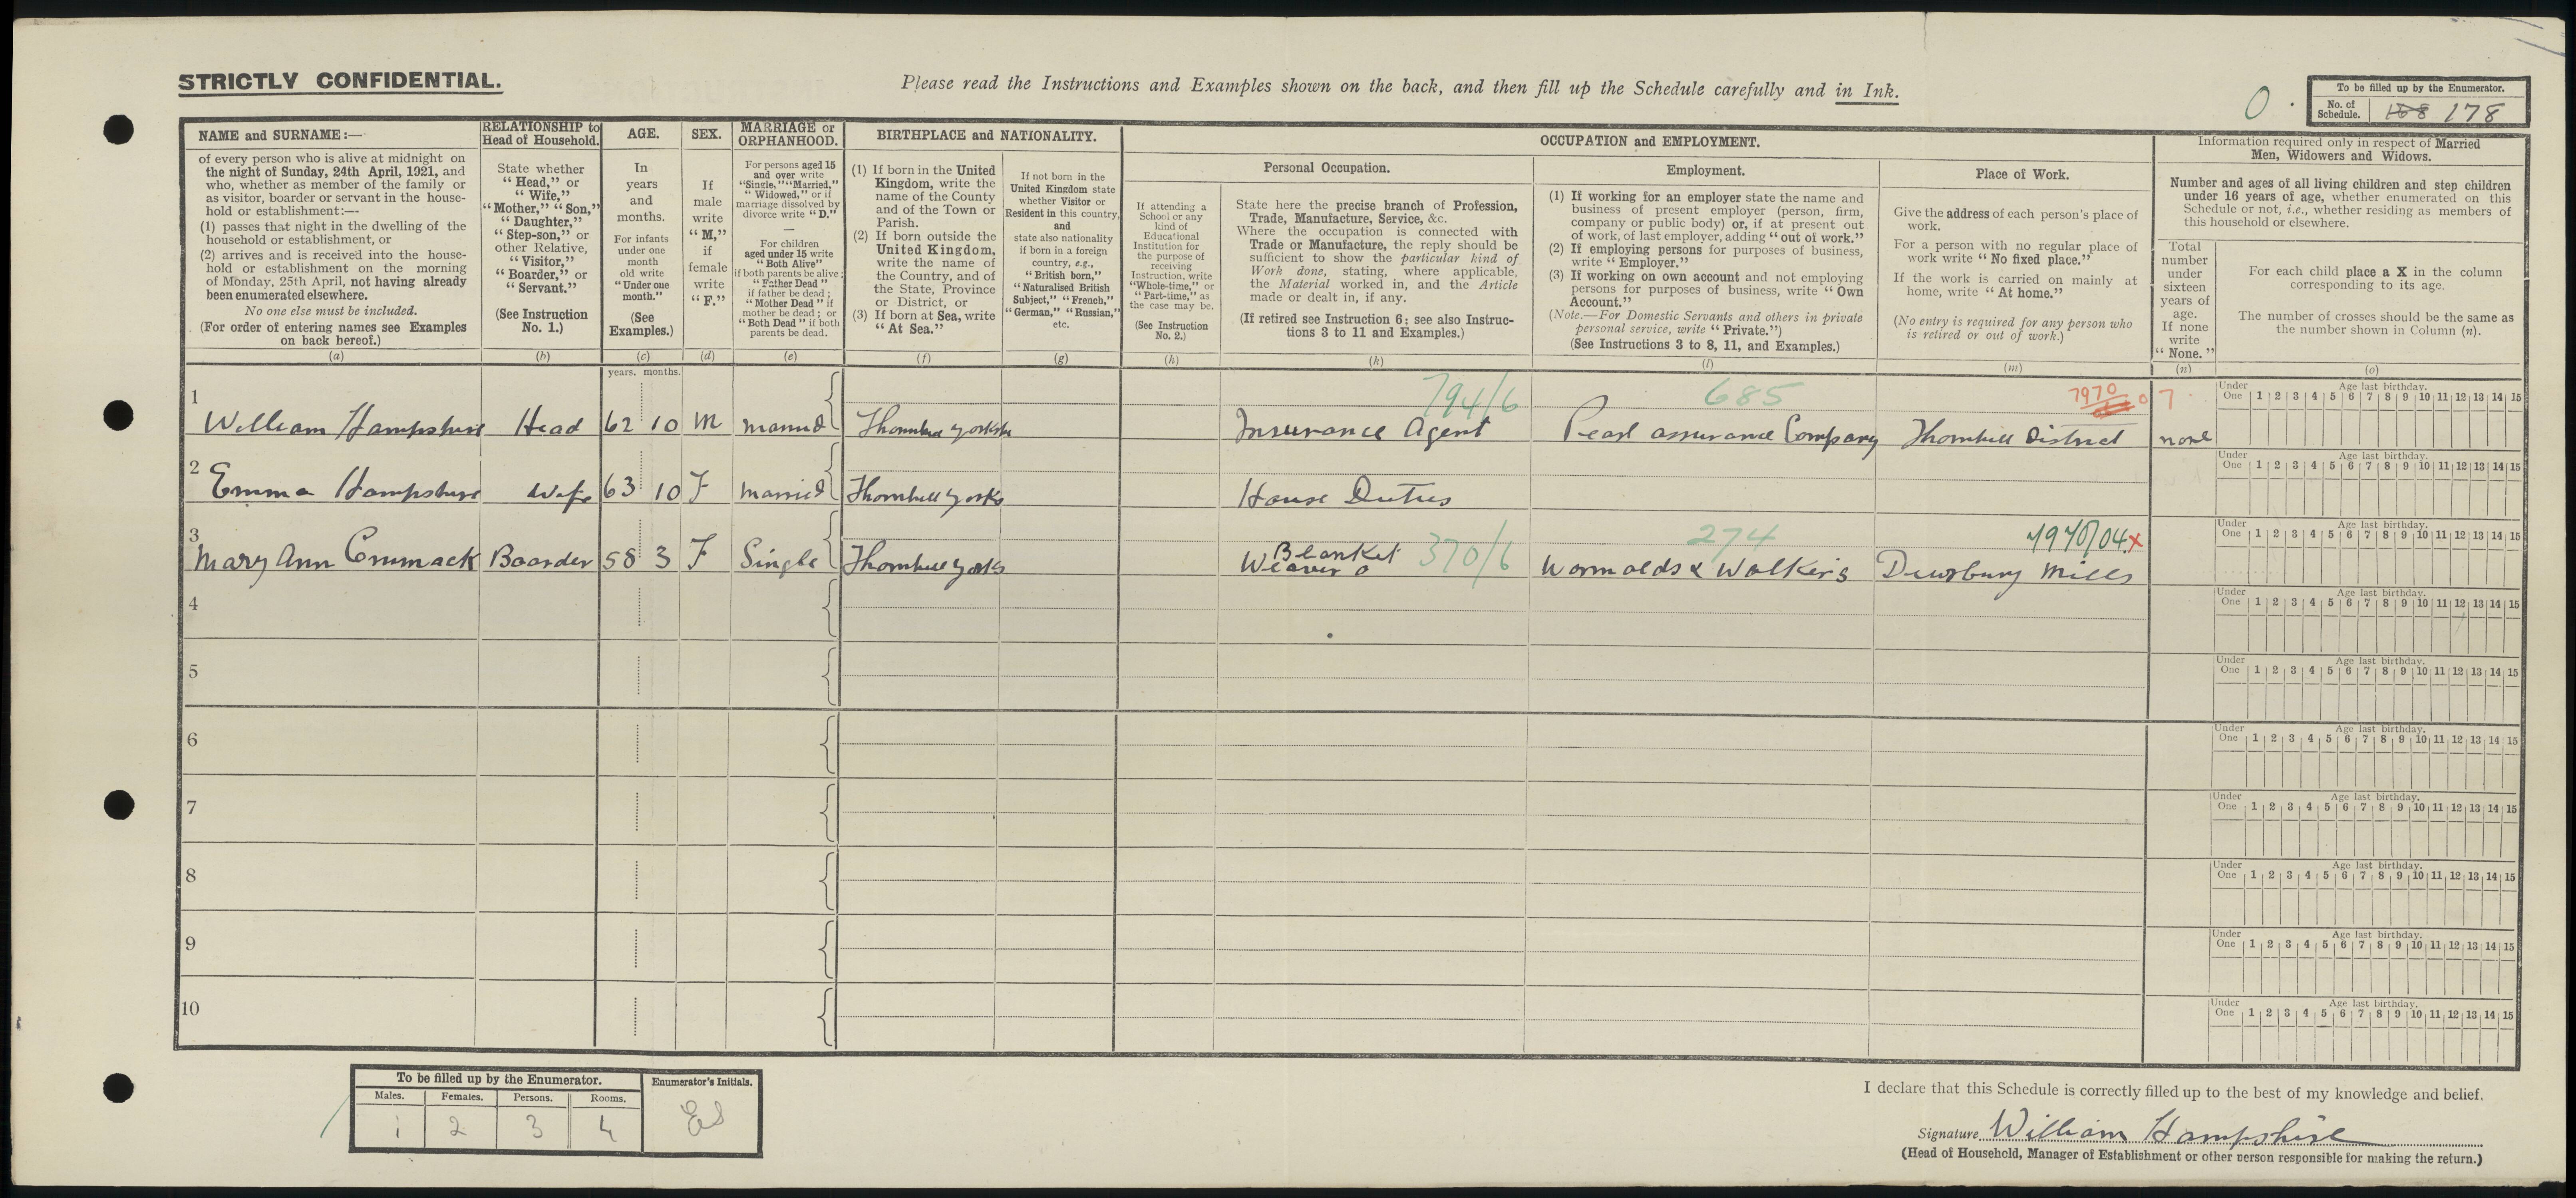 STRICTLY CONFIDENTIAL.
Please read the Instructions and Examples shown on the back, and then fill up the Schedule carefully and in Ink.
0
To be filled up by the Enumerator.
No. of Schedule. 168 178
NAME and SURNAME:—
of every person who is alive at midnight on
the night of Sunday, 24th April, 1921, and
who, whether as member of the family or
as visitor, boarder or servant in the house-
hold or establishment:—
(1) passes that night in the dwelling of the
household or establishment, or
(2) arrives and is received into the house-
hold or establishment on the morning
of Monday, 25th April, not having already
been enumerated elsewhere.
No one else must be included.
(For order of entering names see Examples
on back hereof.)
(a)
RELATIONSHIP to
Head of Household.
State whether
“Head,” or
“Wife,”
“Mother,” “Son,”
“Daughter,”
“Step-son,” or
other Relative,
“Visitor,”
“Boarder,” or
“Servant.”
(See Instruction
No. 1.)
(b)
AGE.
In
years
and
months.
For infants
under one
month
old write
“Under one
month.”
(See
Examples.)
(c)
SEX.
If
male
write
“M,”
if
female
write
“F.”
(d)
MARRIAGE or
ORPHANHOOD.
For persons aged 15
and over write
“Single,” “Married,”
“Widowed,” or if
marriage dissolved by
divorce write “D.”
—
For children
aged under 15 write
“Both Alive”
if both parents be alive;
“Father Dead”
if father be dead;
“Mother Dead” if
mother be dead; or
“Both Dead” if both
parents be dead.
(e)
BIRTHPLACE and NATIONALITY.
(1) If born in the United
Kingdom, write the
name of the County
and of the Town or
Parish.
(2) If born outside the
United Kingdom,
write the name of
the Country, and of
the State, Province
or District, or
(3) If born at Sea, write
“At Sea.”
(f)
If not born in the
United Kingdom state
whether Visitor or
Resident in this country,
and
state also nationality
if born in a foreign
country, e.g.,
“British born,”
“Naturalised British
Subject,” “French,”
“German,” “Russian,”
etc.
(g)
OCCUPATION and EMPLOYMENT.
If attending a
School or any
kind of
Educational
Institution for
the purpose of
receiving
Instruction, write
“Whole-time,” or
“Part-time,” as
the case may be.
(See Instruction
No. 2.)
(h)
Personal Occupation.
State here the precise branch of Profession,
Trade, Manufacture, Service, &c.
Where the occupation is connected with
Trade or Manufacture, the reply should be
sufficient to show the particular kind of
Work done, stating, where applicable,
the Material worked in, and the Article
made or dealt in, if any.
(If retired see Instruction 6; see also Instruc-
tions 3 to 11 and Examples.)
(k)
Employment.
(1) If working for an employer state the name and
business of present employer (person, firm,
company or public body) or, if at present out
of work, of last employer, adding “out of work.”
(2) If employing persons for purposes of business,
write “Employer.”
(3) If working on own account and not employing
persons for purposes of business, write “Own
Account.”
(Note.—For Domestic Servants and others in private
personal service, write “Private.”)
(See Instructions 3 to 8, 11, and Examples.)
(l)
Place of Work.
Give the address of each person's place of
work.
For a person with no regular place of
work write “No fixed place.”
If the work is carried on mainly at
home, write “At home.”
(No entry is required for any person who
is retired or out of work.)
(m)
Information required only in respect of Married
Men, Widowers and Widows.
Number and ages of all living children and step children
under 16 years of age, whether enumerated on this
Schedule or not, i.e., whether residing as members of
this household or elsewhere.
Total
number
under
sixteen
years of
age.
If none
write
“None.”
(n)
For each child place a X in the column
corresponding to its age.
The number of crosses should be the same as
the number shown in Column (n).
(o)
years. months.
794/6 685 7970 0 7
1 William Hampshire Head 62 10 M married Thornhill Yorksh Insurance Agent Pearl assurance Company Thornhill District none
Under One Age last birthday. 1 2 3 4 5 6 7 8 9 10 11 12 13 14 15
2 Emma Hampshire Wife 63 10 F married Thornhill Yorks House Duties
Under One Age last birthday. 1 2 3 4 5 6 7 8 9 10 11 12 13 14 15
Blanket 370/6 274 7970/04 x
3 Mary Ann Cormack Boarder 58 3 F Single Thornhill Yorks Weaver Wormalds & Walkers Dewsbury Mills
Under One Age last birthday. 1 2 3 4 5 6 7 8 9 10 11 12 13 14 15
4
Under One Age last birthday. 1 2 3 4 5 6 7 8 9 10 11 12 13 14 15
5
Under One Age last birthday. 1 2 3 4 5 6 7 8 9 10 11 12 13 14 15
6
Under One Age last birthday. 1 2 3 4 5 6 7 8 9 10 11 12 13 14 15
7
Under One Age last birthday. 1 2 3 4 5 6 7 8 9 10 11 12 13 14 15
8
Under One Age last birthday. 1 2 3 4 5 6 7 8 9 10 11 12 13 14 15
9
Under One Age last birthday. 1 2 3 4 5 6 7 8 9 10 11 12 13 14 15
10
Under One Age last birthday. 1 2 3 4 5 6 7 8 9 10 11 12 13 14 15
To be filled up by the Enumerator.
Males. Females. Persons. Rooms.
1 2 3 4
Enumerator's Initials.
ES
I declare that this Schedule is correctly filled up to the best of my knowledge and belief.
Signature William Hampshire
(Head of Household, Manager of Establishment or other person responsible for making the return.)